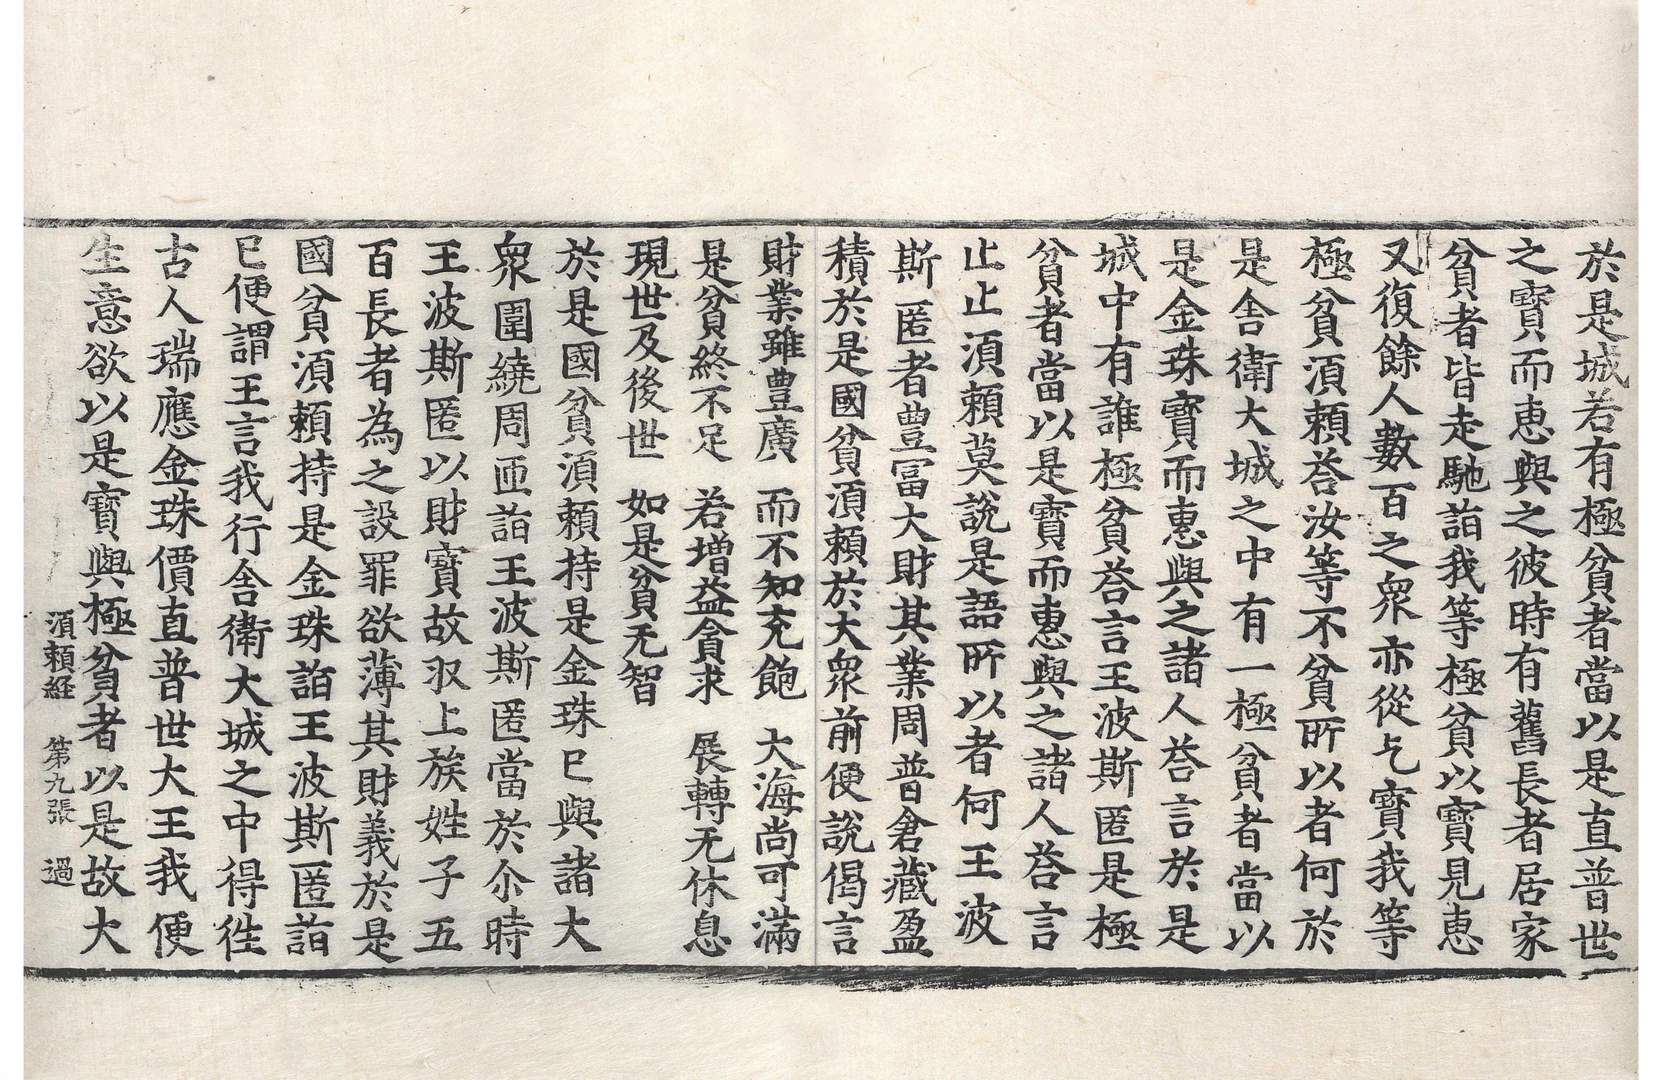 於是城若有極貧者當以是直普世
之寶而恵與之彼時有舊長者居家
貧者皆走馳詣我等極貧以寶見恵
又復餘人數百之衆亦從乞寶我等
極貧湏賴荅汝等不貧所以者何於
是舍衛大城之中有一極貧者當以
是金珠寶而恵與之諸人荅言於是
城中有誰極貧荅言王波斯匿是極
貧者當以是寶而恵與之諸人荅言
止止湏賴莫說是語所以者何王波
斯匿者豊冨大財其業周普倉藏盈
積於是國貧湏賴於大衆前便說偈言
財業雖豊廣　而不知充飽　大海尚可滿
是貧終不足　若增益貪求　展轉无休息
現世及後世　如是貧无智
於是國貧湏賴持是金珠巳與諸大
衆圍繞周匝詣王波斯匿當於尒時
王波斯匿以財寶故㕛上族姓子五
百長者為之設罪欲薄其財義於是
國貧湏賴持是金珠詣王波斯匿詣
巳便謂王言我行舍衛大城之中得徃
古人瑞應金珠價直普世大王我便
生意欲以是寶與極貧者以是故大
湏賴経　第九張　過